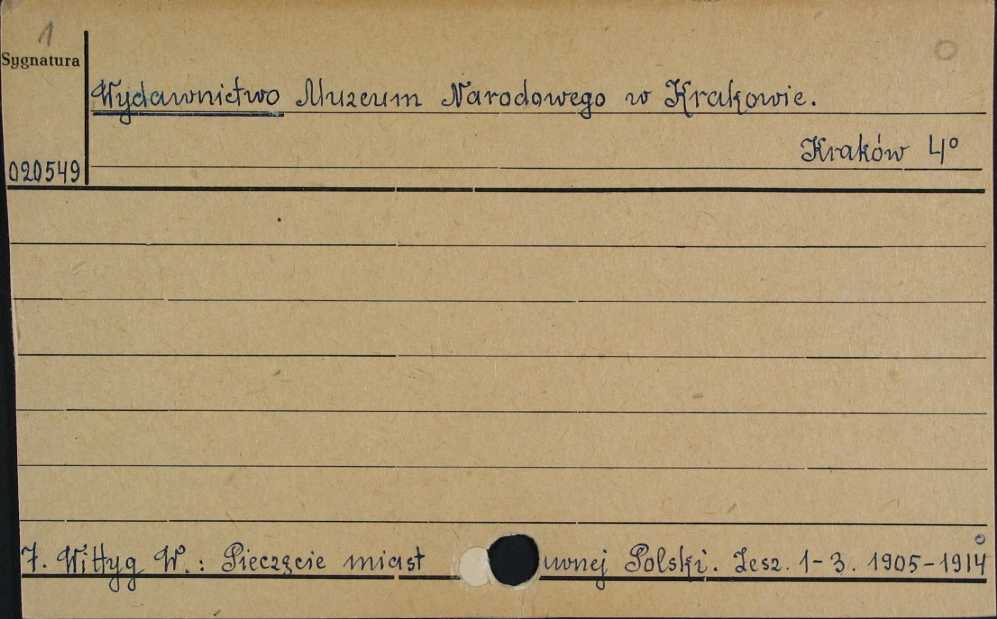 1
Sygnatura
Wydawnictwo Muzeum Narodowego w Krakowie.
Kraków 4°
020549
7. Wittyg W.: Pieczęcie miast wnej Polski. Zesz. 1-3. 1905-1914